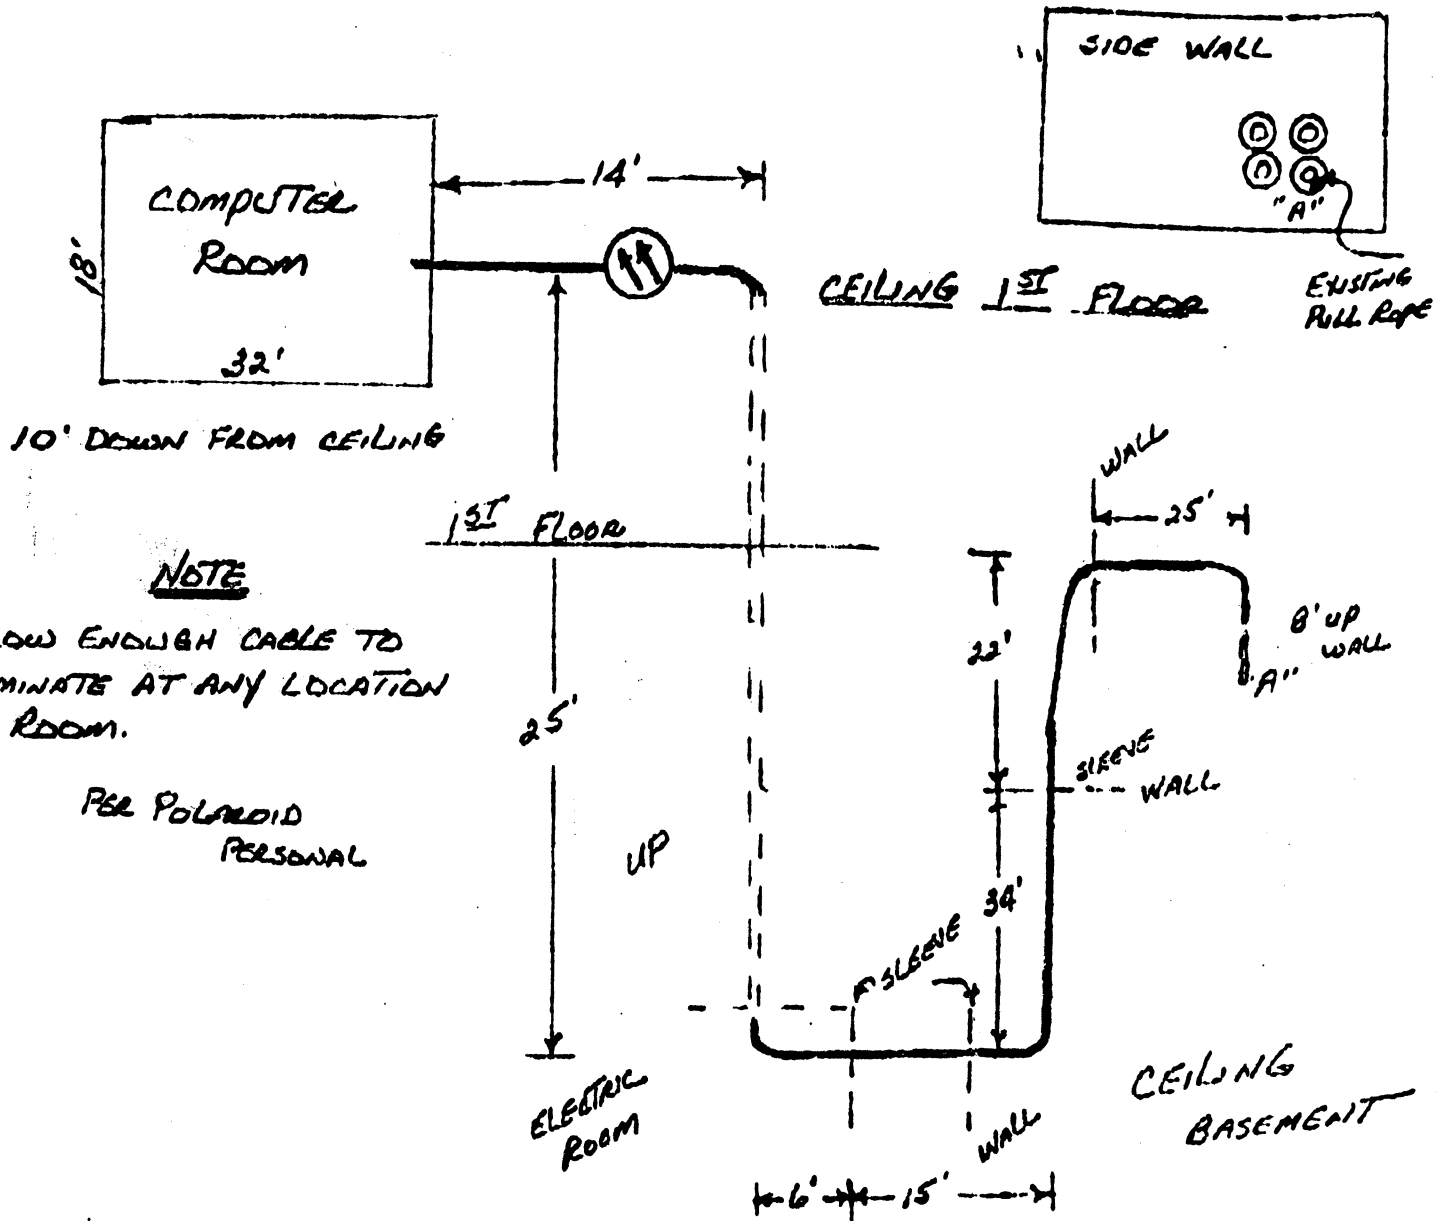 SIDE WALL
"A"
EXISTING
PULL ROPE
COMPUTER
ROOM
18'
32'
14'
CEILING 1ST FLOOR
10' DOWN FROM CEILING
1ST FLOOR
NOTE
LOW ENOUGH CABLE TO
MINATE AT ANY LOCATION
ROOM.
PER POLAROID
PERSONAL
25'
UP
WALL
25'
22'
8' UP
WALL
"A"
SLEEVE
WALL
34'
SLEEVE
ELECTRIC
ROOM
WALL
CEILING
BASEMENT
6'
15'